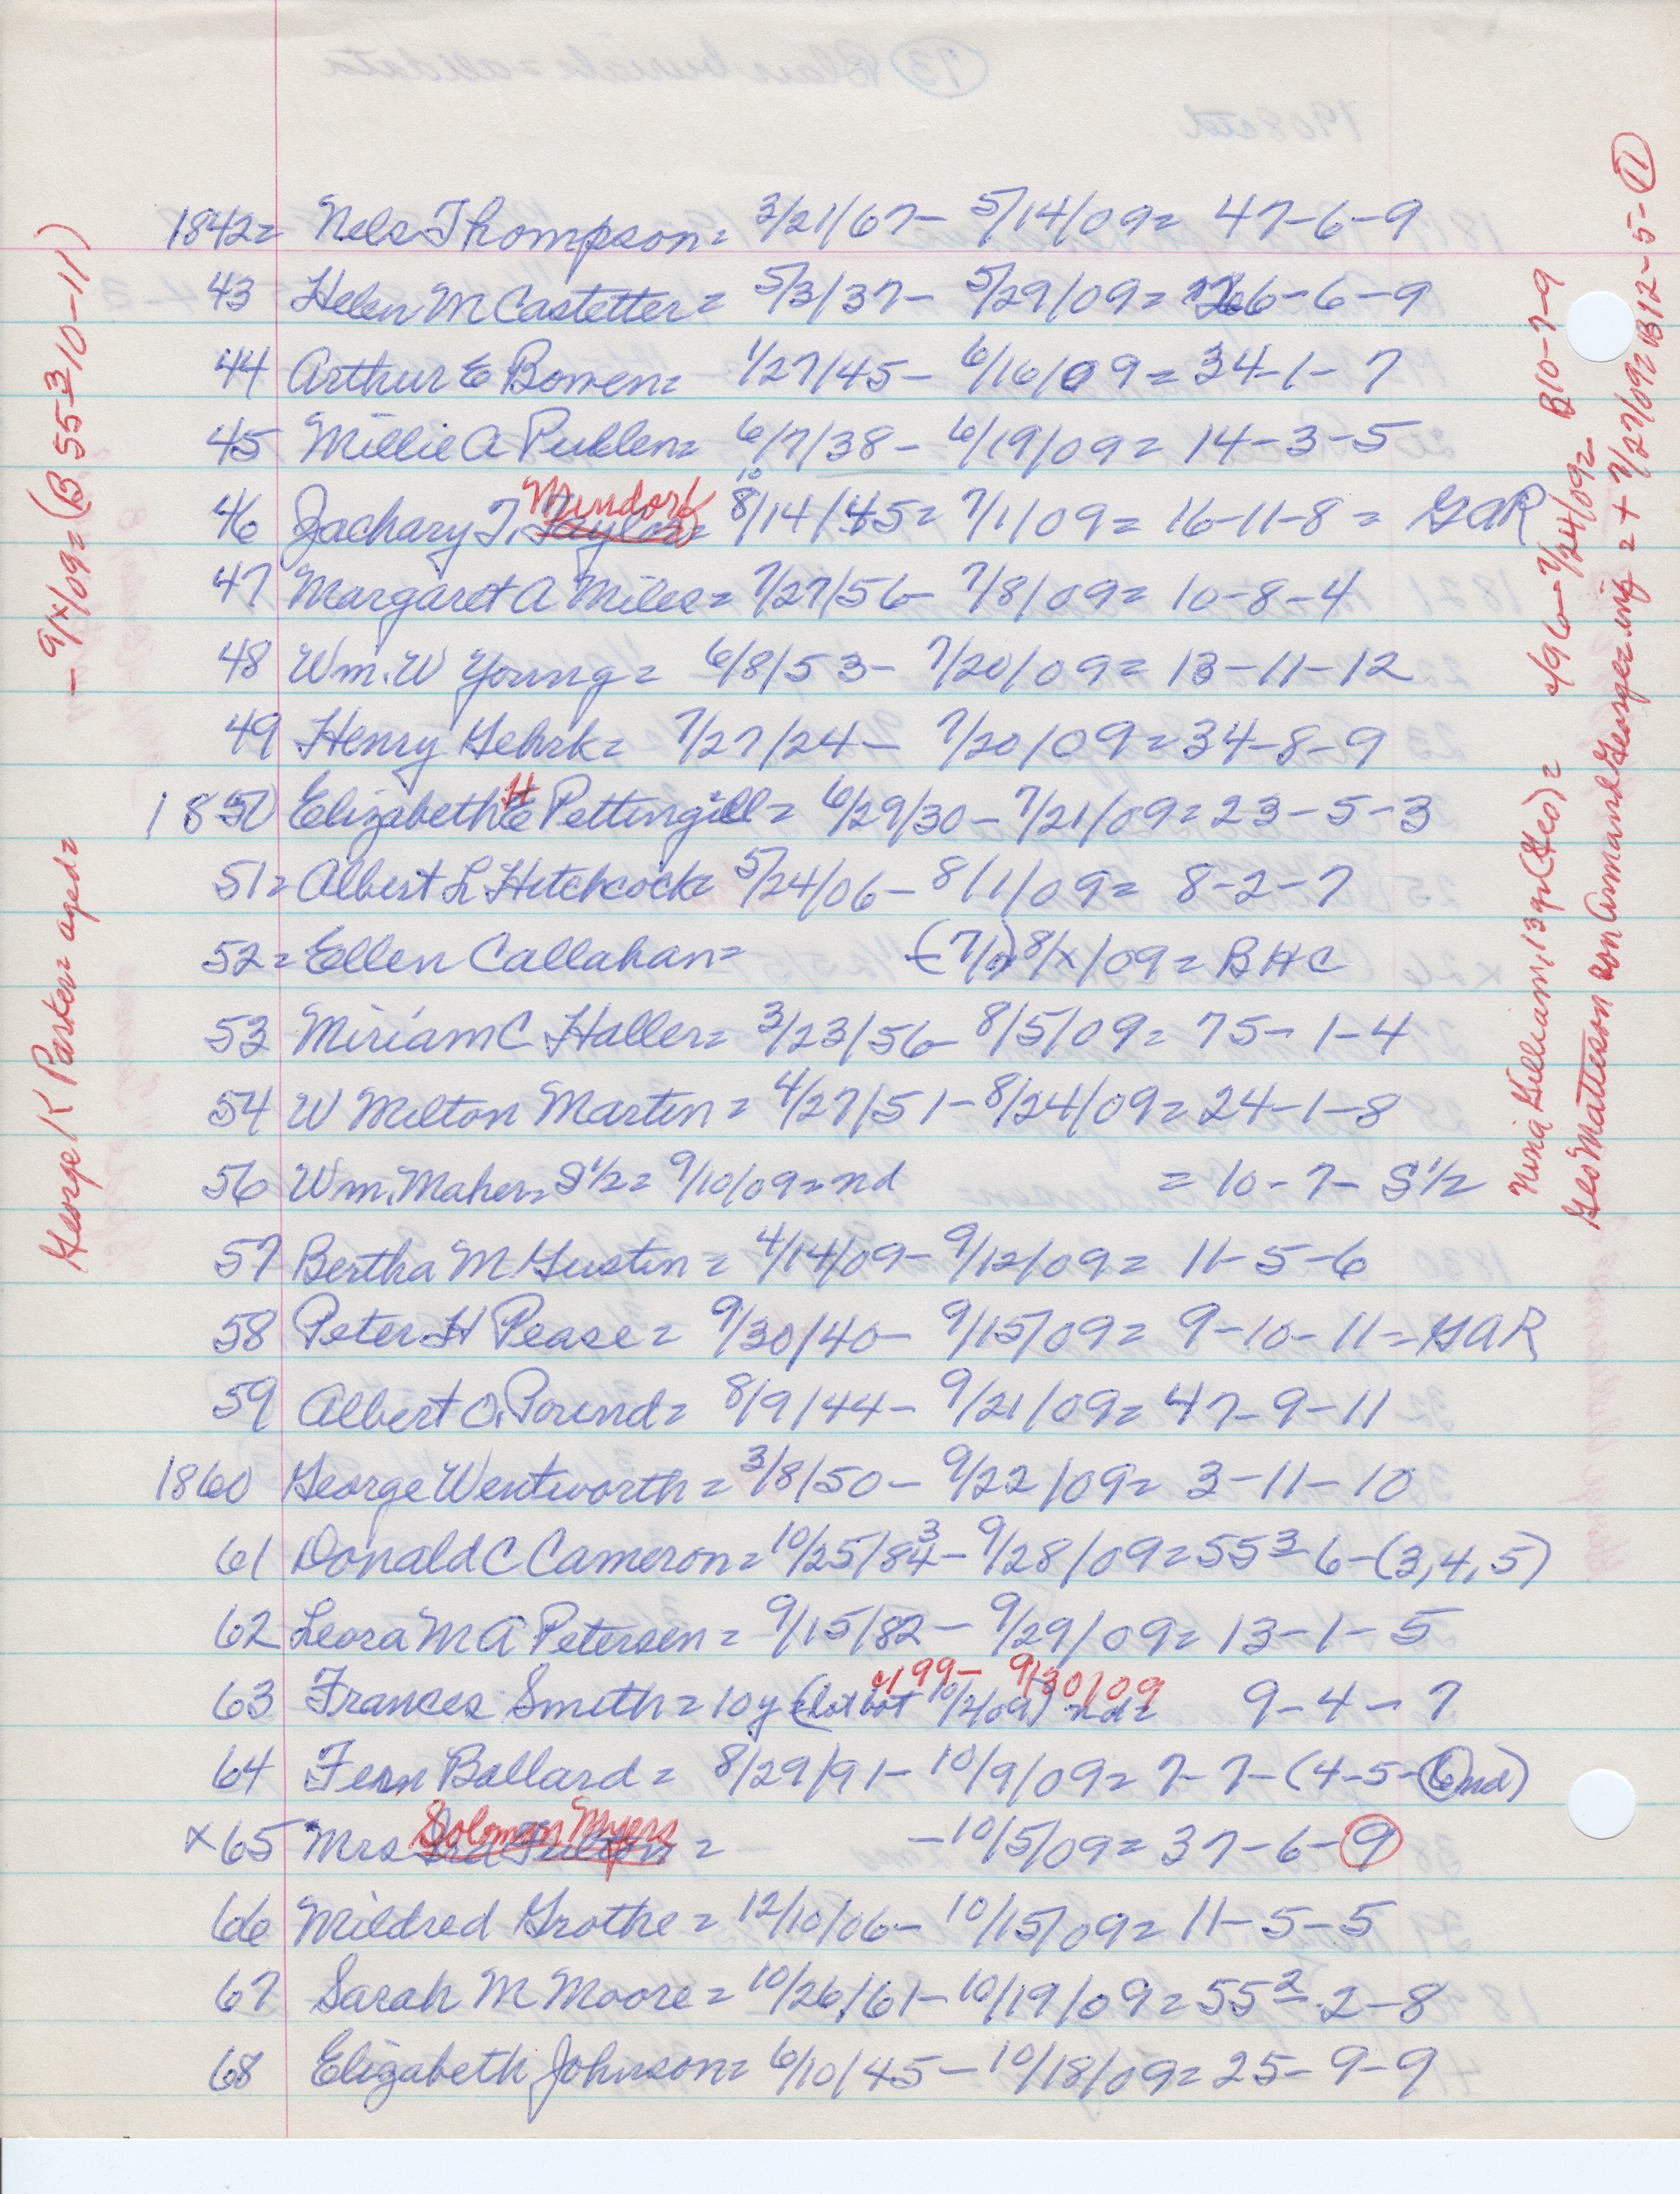 1842= Nels Thompson= 3/21/67- 5/14/09= 47-6-9
43 Helen M Castetter= 5/3/37- 5/29/09= 66-6-9
44 Arthur E Bowen= 1/27/45- 6/16/09= 34-1-7
45 Millie A Pullen= 6/7/38- 6/19/09= 14-3-5
Mundorf 10
46 Zachary T. Taylor= 8/14/45= 7/1/09= 16-11-8= GAR
47 Margaret A Miles= 7/27/56- 7/8/09= 10-8-4
48 Wm. W Young= 6/8/53- 7/20/09= 13-11-12
49 Henry Gehrk= 7/27/24- 7/20/09= 34-8-9
H
1850 Elizabeth E Pettingill= 6/29/30- 7/21/09= 23-5-3
51= Albert L Hitchcock= 5/24/06- 8/1/09= 8-2-7
52= Ellen Callahan= 8/x/09= BHC
53 Miriam C Haller= 3/23/56- 8/5/09= 75-1-4
54 W Milton Martin= 4/27/51- 8/24/09= 24-1-8
56 Wm. Maher= S½= 9/10/09= nd = 10-7-S½
57 Bertha M Gustin= 4/14/09- 9/12/09= 11-5-6
58 Peter H Pease= 9/30/40- 9/15/09= 9-10-11= GAR
59 Albert O. Pound= 8/9/44- 9/21/09= 47-9-11
1860 George Wentworth= 3/8/50- 9/22/09= 3-11-10
3
61 Donald C Cameron= 10/25/84- 9/28/09= 55³-6-(3,4,5)
62 Leora M A Petersen= 9/15/82- 9/29/09= 13-1-5
c/99- 9/30/09
63 Frances Smith= 10y (lot bot 10/2/09) nd= 9-4-7
64 Fern Ballard= 8/29/91- 10/9/09= 7-7-(4-5-6nd)
Solomon Myers
x65 Mrs = -10/5/09= 37-6-9
66 Mildred Grothe= 12/10/06- 10/15/09= 11-5-5
67 Sarah M Moore= 10/26/61- 10/19/09= 55²-2-8
68 Elizabeth Johnson= 6/10/45- 10/18/09= 25-9-9
George K Parker= aged= - 9/x/09= (B 55-3/10-11)
Nina Gilliam, 13 yr (Geo)= c/96- 7/24/09= B10-7-9
Geo Matteson son Armand George= = + 7/27/09= B12-5-11